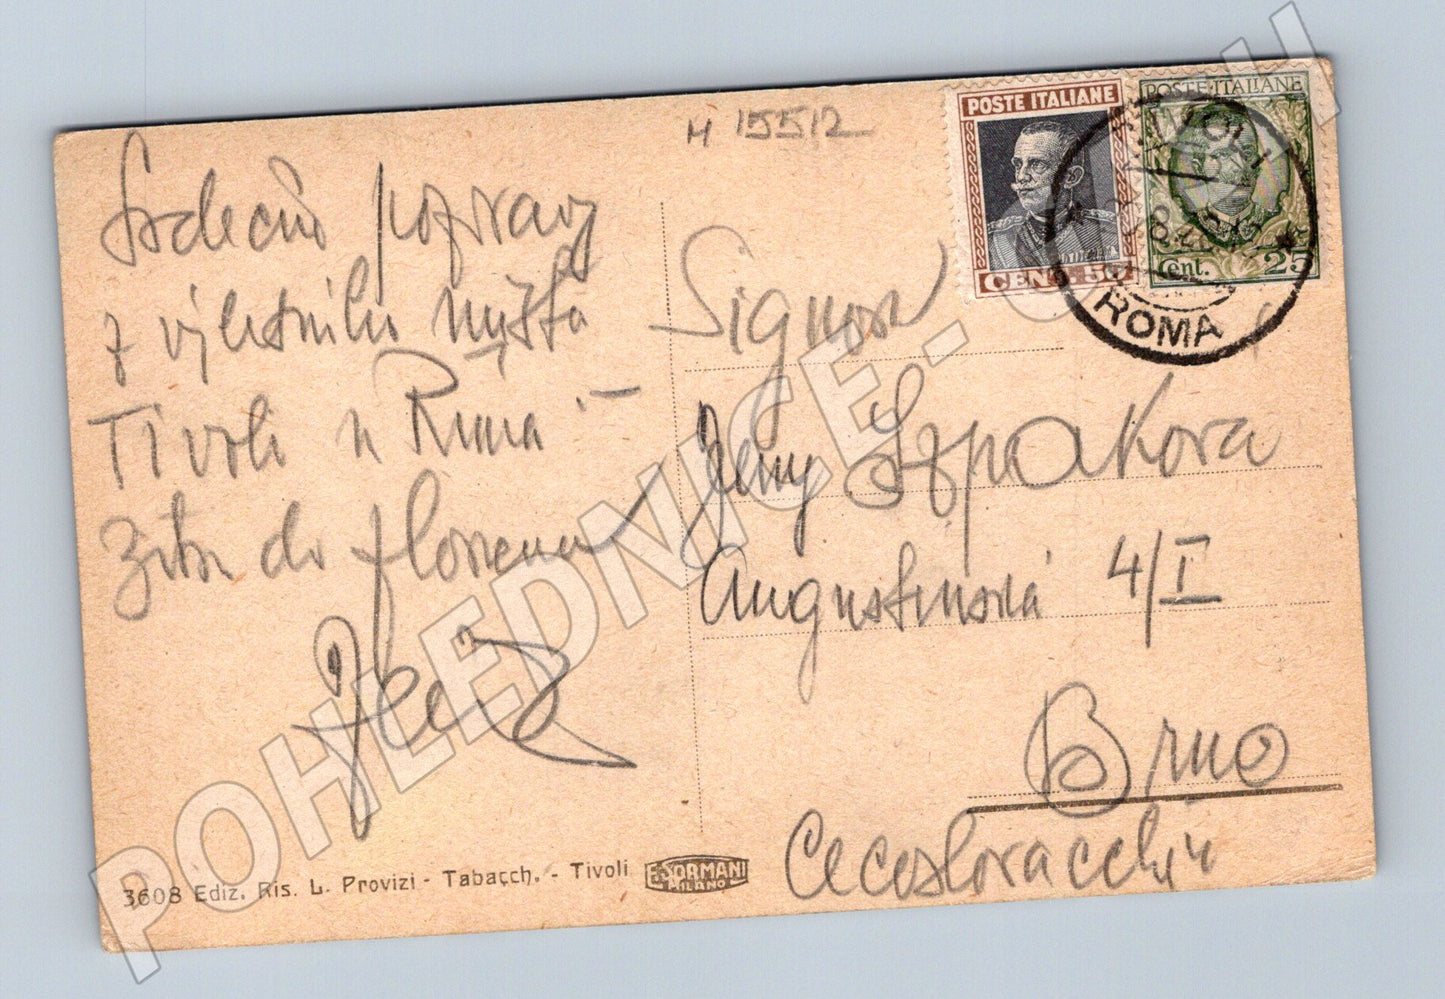 M 15512
Srdečný pozdrav
z výletního místa
Tivoli u Říma –
Zítra do Florence
POSTE ITALIANE
CENT. 50
POSTE ITALIANE
Cent. 25
TIVOLI
ROMA
Signora
Jeny Szpakova
Augustinská 4/I
Brno
Cecoslovacchia
3608 Ediz. Ris. L. Provizi - Tabacch. - Tivoli
E. SORMANI
MILANO